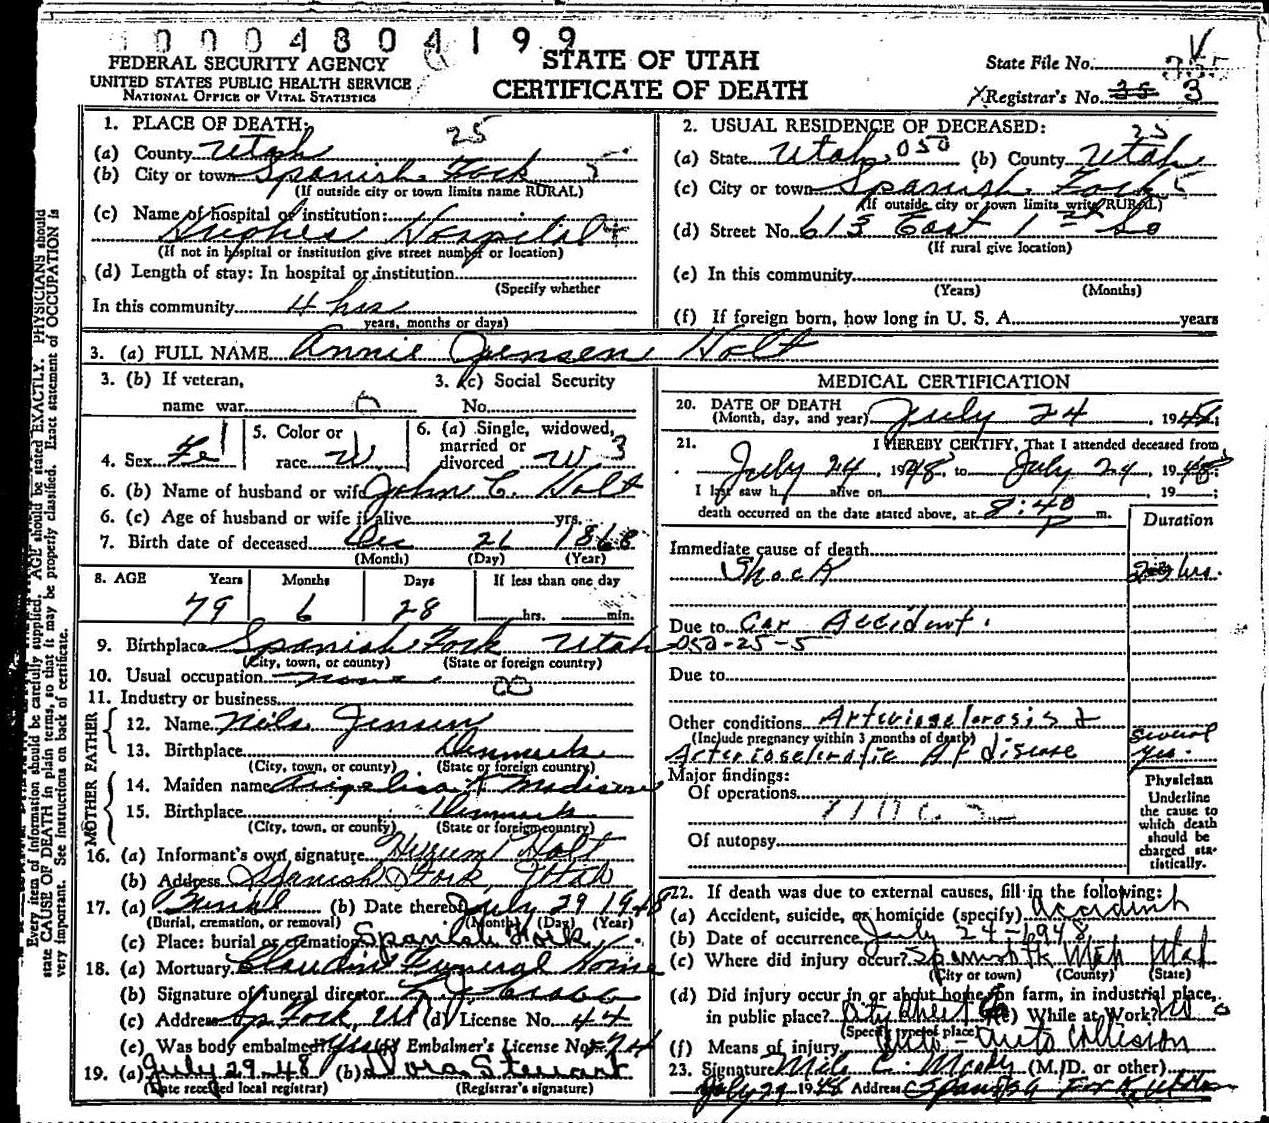 0004804199
FEDERAL SECURITY AGENCY
UNITED STATES PUBLIC HEALTH SERVICE
NATIONAL OFFICE OF VITAL STATISTICS
STATE OF UTAH
CERTIFICATE OF DEATH
State File No.
Registrar's No. 35 3
1. PLACE OF DEATH: 25
(a) County Utah
(b) City or town Spanish Fork 5
(If outside city or town limits name RURAL)
(c) Name of hospital or institution:
Hughes Hospital
(If not in hospital or institution give street number or location)
(d) Length of stay: In hospital or institution
(Specify whether
In this community 4 hrs
years, months or days)
2. USUAL RESIDENCE OF DECEASED: 25
(a) State Utah 050 (b) County Utah
(c) City or town Spanish Fork 5
(If outside city or town limits write RURAL)
(d) Street No. 613 East 1st So
(If rural give location)
(e) In this community
(Years) (Months)
(f) If foreign born, how long in U. S. A. years
3. (a) FULL NAME Annie Jensen Holt
3. (b) If veteran,
name war
3. (c) Social Security
No.
4. Sex Fe 1
5. Color or
race W
6. (a) Single, widowed,
married or
divorced W 3
6. (b) Name of husband or wife John C. Holt
6. (c) Age of husband or wife if alive yrs.
7. Birth date of deceased Dec 26 1868
(Month) (Day) (Year)
8. AGE Years Months Days If less than one day
79 6 28 hrs. min.
9. Birthplace Spanish Fork Utah
(City, town, or county) (State or foreign country)
10. Usual occupation none
11. Industry or business
FATHER
12. Name Nels Jensen
13. Birthplace Denmark
(City, town, or county) (State or foreign country)
MOTHER
14. Maiden name
15. Birthplace Denmark
(City, town, or county) (State or foreign country)
16. (a) Informant's own signature Hyrum Holt
(b) Address Spanish Fork, Utah
17. (a) Burial (b) Date thereof July 29 1948
(Burial, cremation, or removal) (Month) (Day) (Year)
(c) Place: burial or cremation Spanish Fork
18. (a) Mortuary Claudin Funeral Home
(b) Signature of funeral director
(c) Address Sp Fork, Ut (d) License No. 44
(e) Was body embalmed? yes (f) Embalmer's License No.
19. (a) July 29-48 (b) Nora Stewart
(Date received local registrar) (Registrar's signature)
MEDICAL CERTIFICATION
20. DATE OF DEATH
(Month, day, and year) July 24 1948;
21. I HEREBY CERTIFY, That I attended deceased from
July 24, 1948, to July 24, 1948
I last saw h alive on , 19 ;
death occurred on the date stated above, at 8:40 P m.
Duration
Immediate cause of death
Shock hrs.
Due to Car Accident.
050-25-5
Due to
Other conditions Arteriosclerosis &
(Include pregnancy within 3 months of death)
Arteriosclerotic Ht disease
several
yrs.
Major findings:
Of operations
Of autopsy
Physician
Underline
the cause to
which death
should be
charged sta-
tistically.
22. If death was due to external causes, fill in the following:
(a) Accident, suicide, or homicide (specify) Accident
(b) Date of occurrence July 24-1948
(c) Where did injury occur? Spanish Fk Utah Utah
(City or town) (County) (State)
(d) Did injury occur in or about home, on farm, in industrial place,
in public place? City Street (e) While at Work? No
(Specify type of place)
(f) Means of injury Auto-auto Collision
23. Signature Milo C. Moody (M.D. or other)
July 29 1948 Address Spanish Fork, Utah
Every item of information should be carefully supplied. AGE should be stated EXACTLY. PHYSICIANS should
state CAUSE OF DEATH in plain terms, so that it may be properly classified. Exact statement of OCCUPATION is
very important. See instructions on back of certificate.